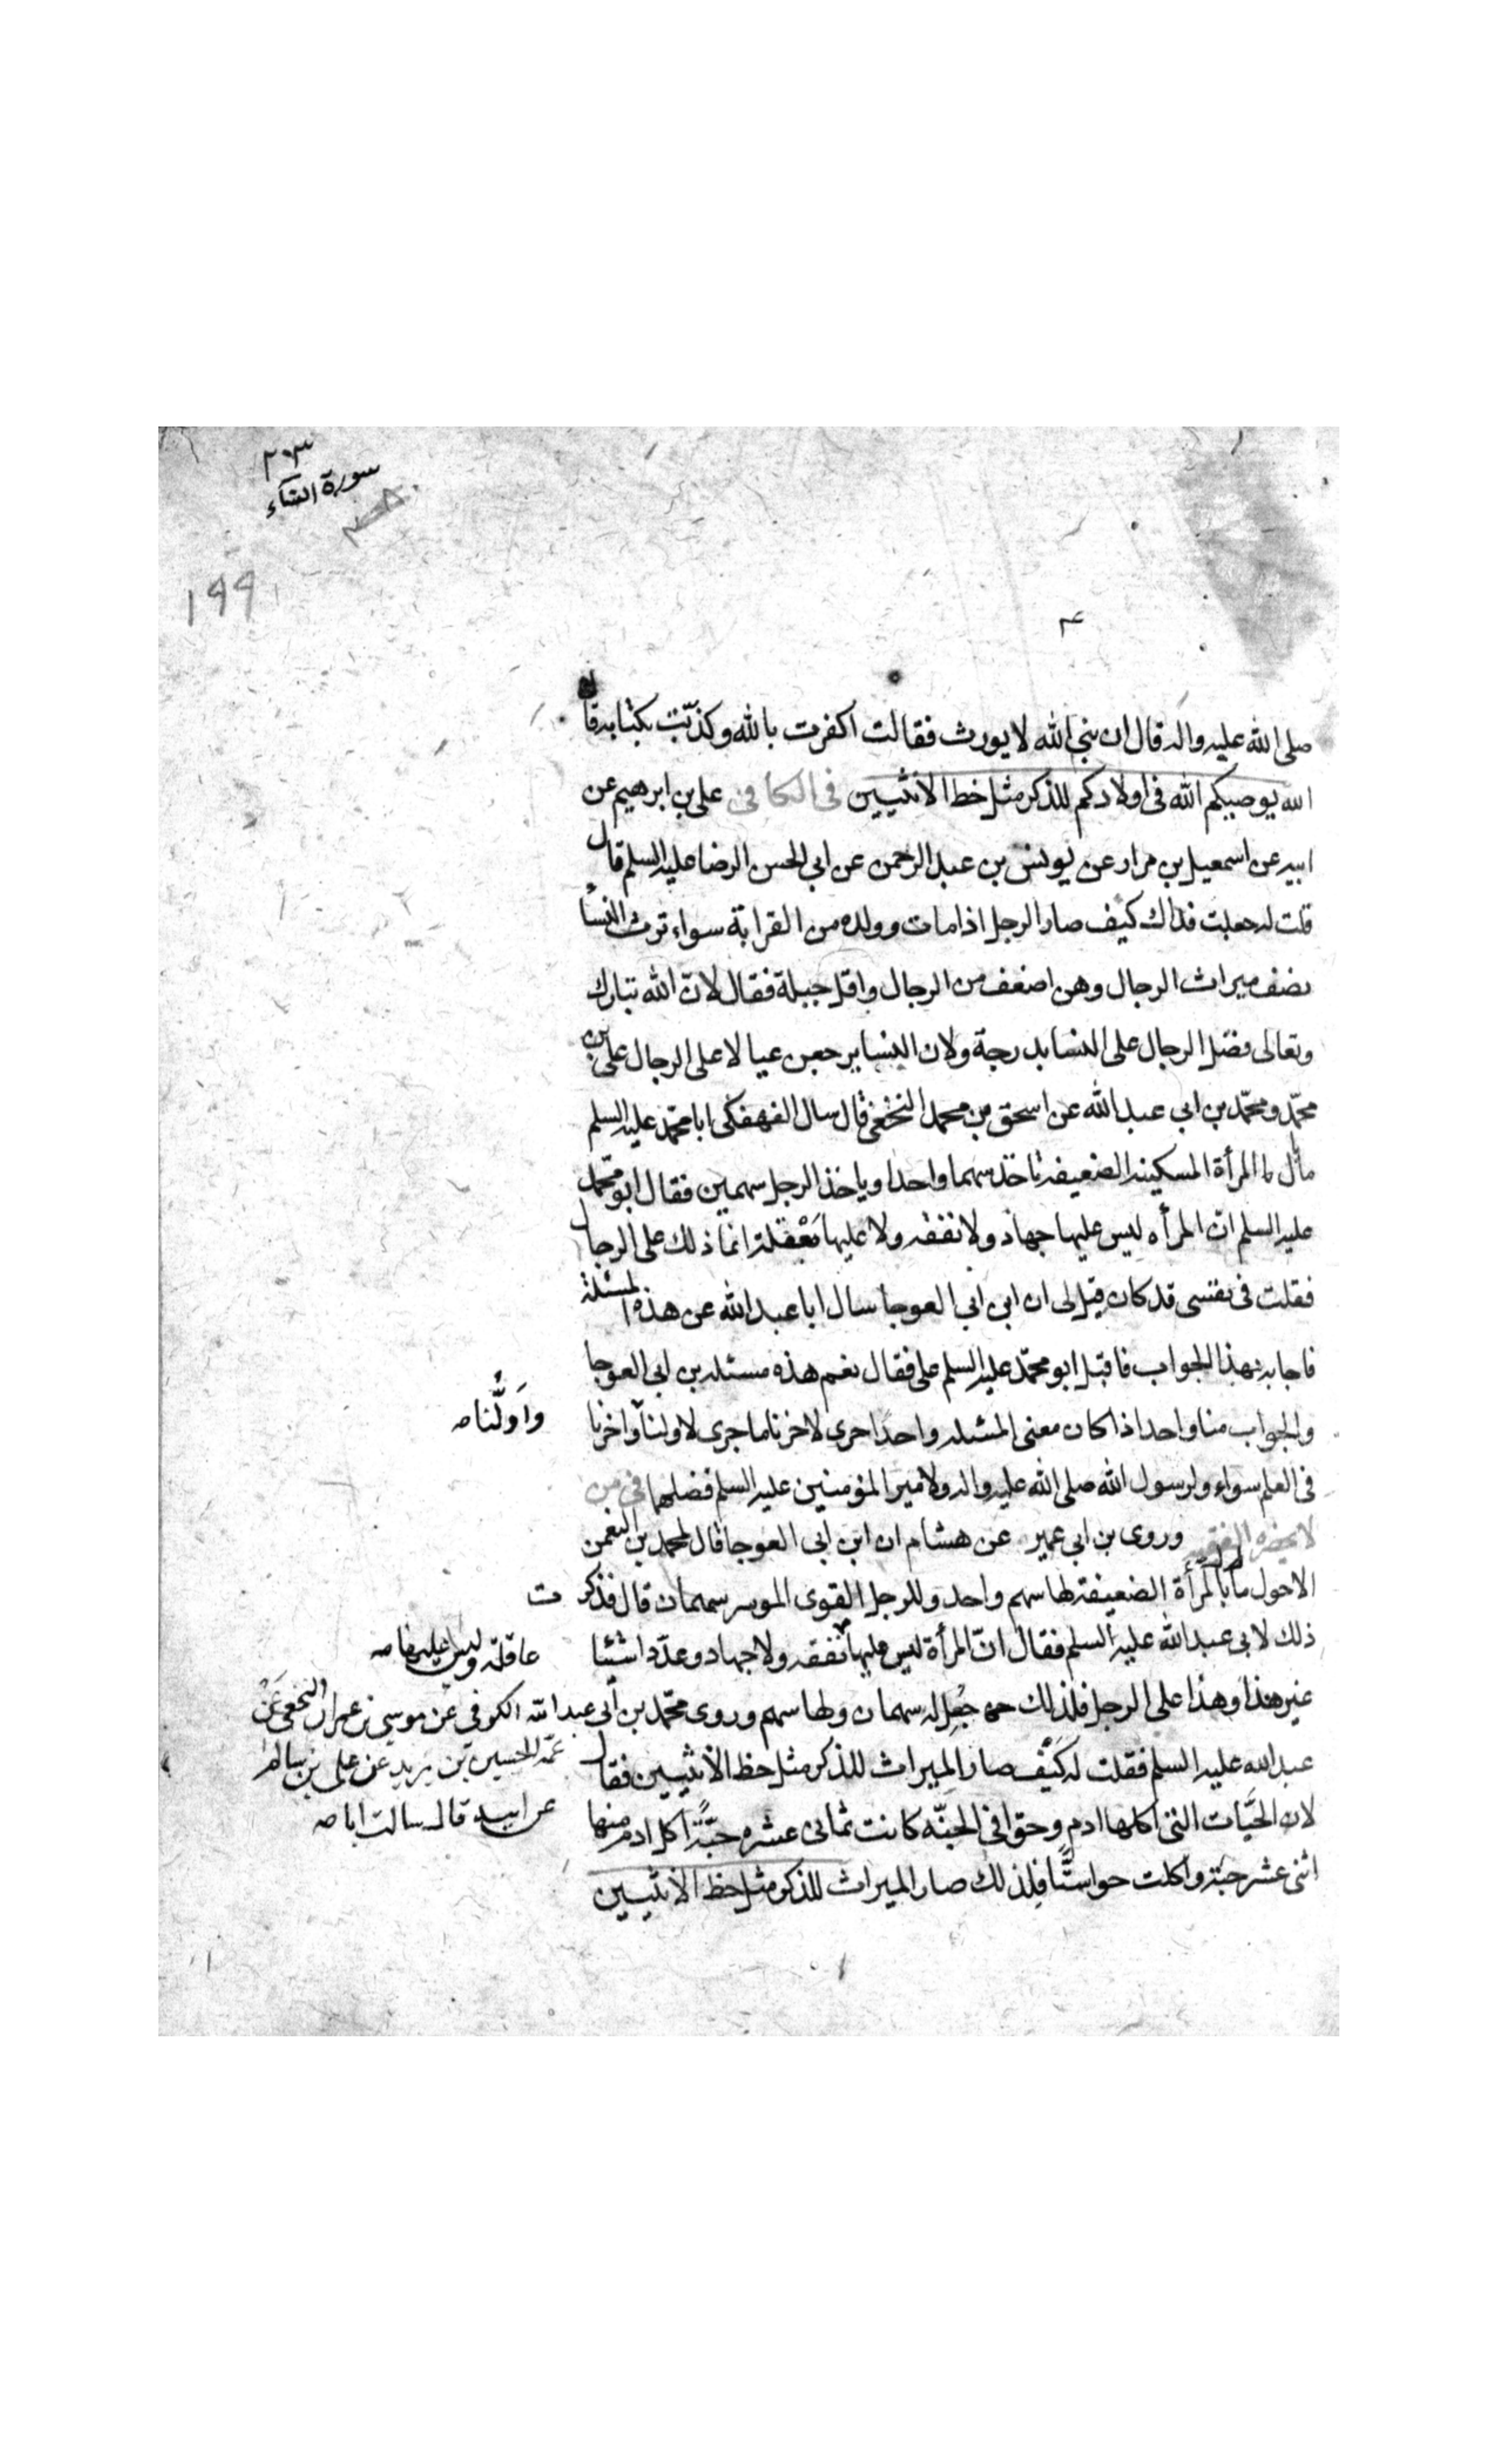 ٢٠٣
سورة النساء
١٩٩
صلى الله عليه واله قال ان نبى الله لا يورث فقالت اكفرت بالله وكذّبت بكتابه قال
الله يوصيكم الله فى اولادكم للذكر مثل حظ الانثيين فى الكافى على بن ابرهيم عن
ابيه عن اسمعيل بن مرار عن يونس بن عبد الرحمن عن ابى الحسن الرضا عليه السلم قال
قلت له جعلت فداك كيف صار الرجل اذا مات وولده من القرابة سواء ترث النسأ
نصف ميراث الرجال وهن اضعف من الرجال واقل حيلة فقال لانّ الله تبارك
وتعالى فضل الرجال على النسا بدرجة ولان النسا يرجعن عيالا على الرجال على بن
محمّد ومحمّد بن ابى عبد الله عن اسحق بن محمد النخعى قال سال الفهفكى ابا محمّد عليه السلم
ما بال المرأة المسكينه الضعيفه تاخذ سهما واحدا وياخذ الرجل سهمين فقال ابو محمّد
عليه السلم انّ المرأه ليس عليها جهاد ولا نفقه ولا عليها مَعْقلة انما ذلك على الرجال
فقلت فى نفسى قد كان قيل لى ان ابن ابى العوجا سال ابا عبد الله عن هذه المسئلة
فاجابه بهذا الجواب فاقبل ابو محمّد عليه السلم على فقال نعم هذه مسئله بن ابى العوجا
والجواب منا واحد اذا كان معنى المسئله واحدا جرى لاخرنا ما جرى لاولنا واخرنا
واوّلُنا صه
فى العلم سواء ولرسول الله صلى الله عليه واله ولامير المؤمنين عليه السلم فضلهما فى من
لا يحضره الفقيه وروى بن ابى عمير عن هشام ان ابن ابى العوجا قال لمحمد بن النعمن
الاحول ما بال المرأة الضعيفة لها سهم واحد وللرجل القوى الموسر سهمان قال فذكرت
ذلك لابى عبد الله عليه السلم فقال انّ المرأة ليس عليها نفقه ولا جهاد وعدّد اشيئا
عاقله وليس عليها صه
غير هذا وهذا على الرجل فلذلك جُعِل له سهمان ولها سهم وروى محمّد بن ابى عبد الله الكوفى عن موسى بن عمران النخعى عَنْ
عمّه الحسين بن يزيد عن على بن سالم
عن ابيه قال سالت ابا صه
عبد الله عليه السلم فقلت له كيف صار الميراث للذكر مثل حظ الانثيين فقال
لان الحبّات التى اكلها ادم وحوّا فى الجنّه كانت ثمانى عشره حبّةً اكل ادم منها
اثنى عشر حبّة واكلت حوا ستًّا فلذلك صار الميراث للذكر مثل حظ الانثيين